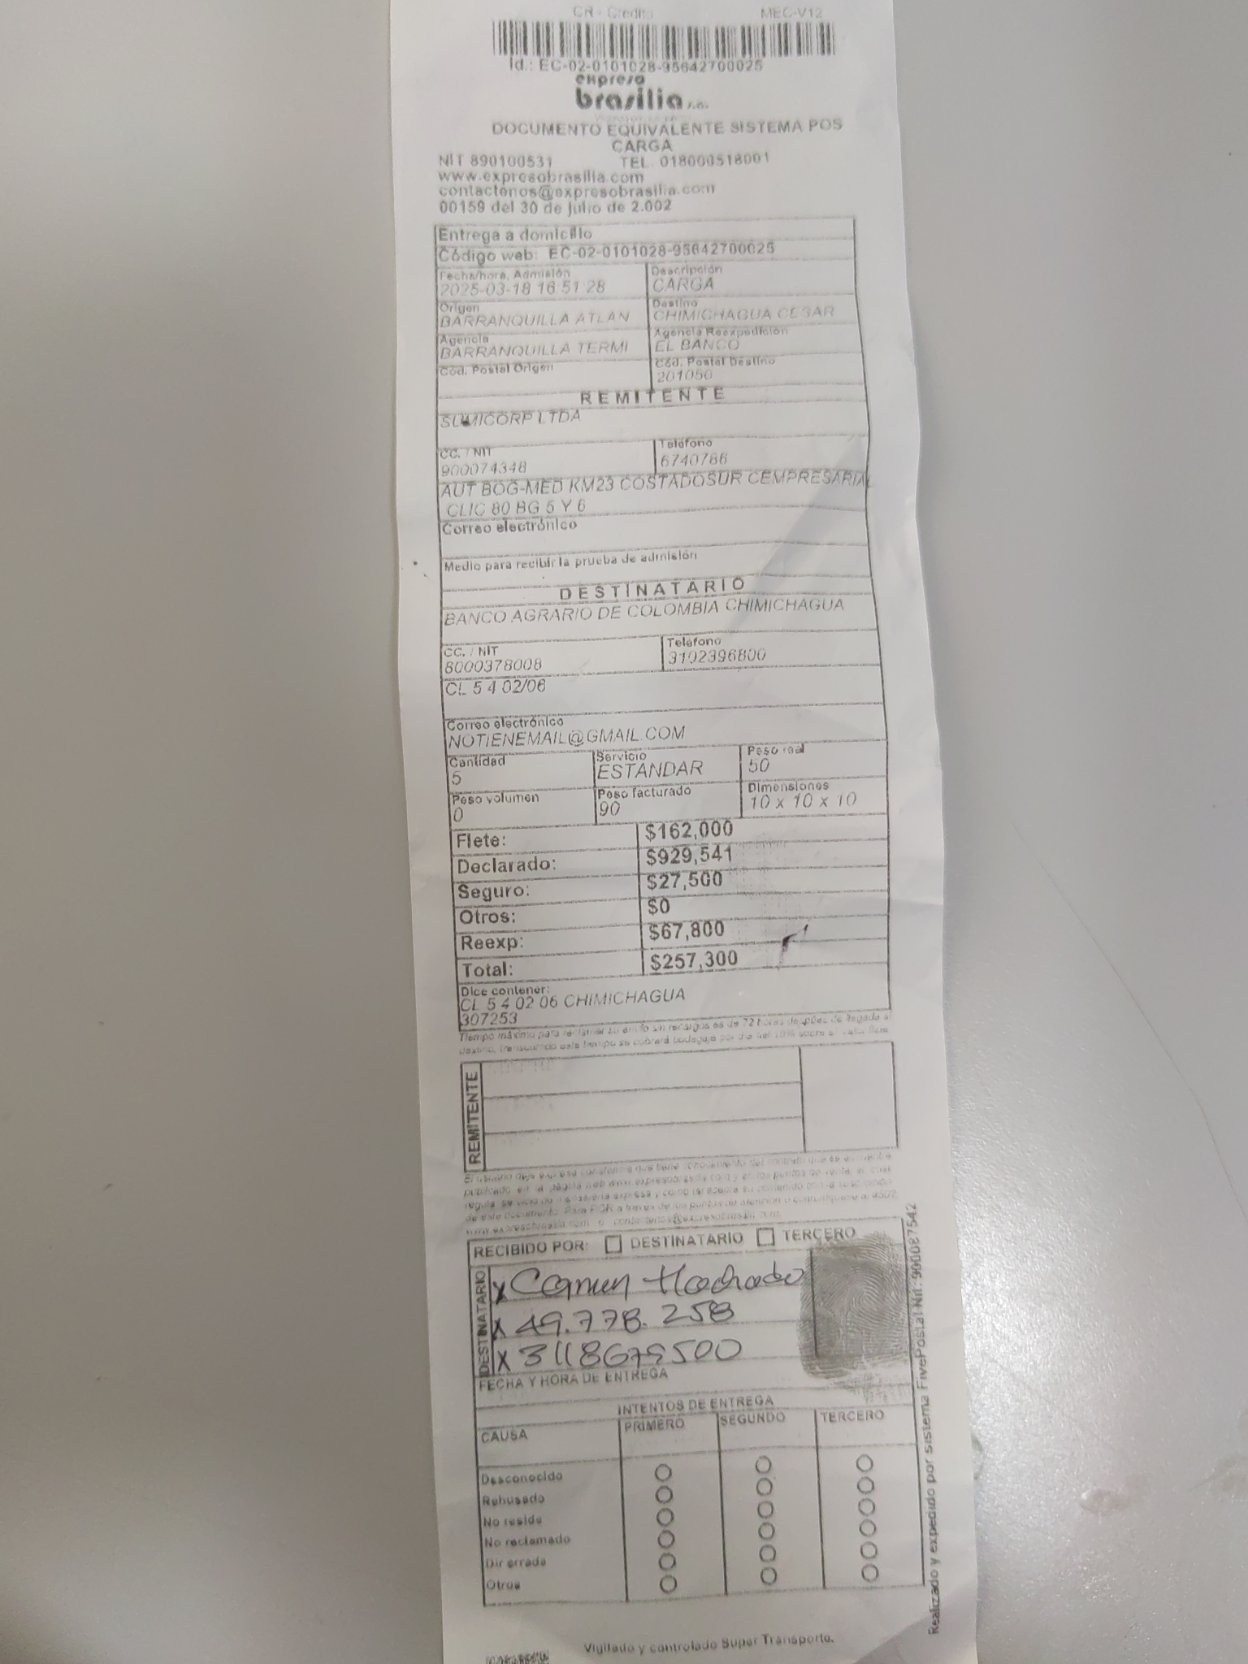 CR - Credito MEC-V12
Id.: EC-02-0101028-95642700025
expreso
brasilia s.a.
DOCUMENTO EQUIVALENTE SISTEMA POS
CARGA
NIT 890100531 TEL. 018000518001
www.expresobrasilia.com
contactenos@expresobrasilia.com
00159 del 30 de Julio de 2.002
Entrega a domicilio
Código web: EC-02-0101028-95642700025
Fecha/hora, Admisión Descripción
2025-03-18 16:51:28 CARGA
Origen Destino
BARRANQUILLA ATLAN CHIMICHAGUA CESAR
Agencia Agencia Reexpedición
BARRANQUILLA TERMI EL BANCO
Cod. Postal Origen Cód. Postal Destino
201050
REMITENTE
SUMICORP LTDA
CC. / NIT Teléfono
900074348 6740786
AUT BOG-MED KM23 COSTADOSUR CEMPRESARIA
CLIC 80 BG 5 Y 6
Correo electrónico
Medio para recibir la prueba de admisión
DESTINATARIO
BANCO AGRARIO DE COLOMBIA CHIMICHAGUA
CC. / NIT Teléfono
8000378008 3102396800
CL 5 4 02/06
Correo electrónico
NOTIENEMAIL@GMAIL.COM
Cantidad Servicio Peso real
5 ESTANDAR 50
Peso volumen Peso facturado Dimensiones
0 90 10 x 10 x 10
Flete: $162,000
Declarado: $929,541
Seguro: $27,500
Otros: $0
Reexp: $67,800
Total: $257,300
Dice contener:
CL 5 4 02 06 CHIMICHAGUA
307253
Tiempo máximo para reclamar su envío sin recargos es de 72 horas después de llegado a
destino, transcurrido este tiempo se cobrará bodegaje por día del 10% sobre el valor flete
REMITENTE
RECIBIDO POR: DESTINATARIO TERCERO
DESTINATARIO
x Carmen Machado
x 49.778.258
x 3118679500
FECHA Y HORA DE ENTREGA
INTENTOS DE ENTREGA
CAUSA PRIMERO SEGUNDO TERCERO
Desconocido
Rehusado
No reside
No reclamado
Dir errada
Otros
Realizado y expedido por sistema FivePostal Nit: 900087542
Vigilado y controlado Super Transporte.